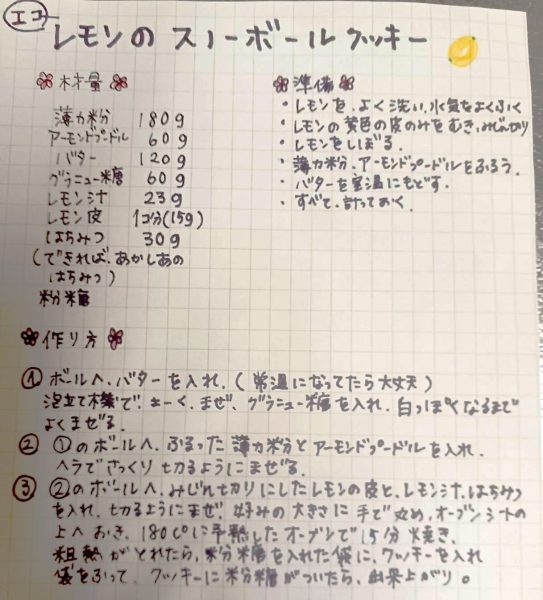 エコ
レモンの スノーボールクッキー
材量
薄力粉 180g
アーモンドプードル 60g
バター 120g
グラニュー糖 60g
レモン汁 23g
レモン皮 1コ分(15g)
はちみつ 30g
(できれば、あかしあの
はちみつ)
粉糖
準備
・レモンを、よく洗い、水気をよくふく
・レモンの黄色の皮のみをむき、みじん切り
・レモンをしぼる。
・薄力粉、アーモンドプードルをふるう。
・バターを室温にもどす。
・すべて、計っておく。
作り方
① ボールへ、バターを入れ、(常温になってたら大丈夫)
泡立て器で、よーく、まぜ、グラニュー糖を入れ、白っぽくなるまで
よくまぜる。
② ①のボールへ、ふるった薄力粉とアーモンドプードルを入れ、
ヘラでさっくり切るようにまぜる。
③ ②のボールへ、みじん切りにしたレモンの皮と、レモン汁、はちみつ
を入れ、切るようにまぜ 好みの大きさに手で丸め、オーブンシートの
上へおき、180℃に予熱したオーブンで15分焼き、
粗熱がとれたら、粉糖を入れた袋に、クッキーを入れ
袋をふって、クッキーに粉糖がついたら、出来上がり。